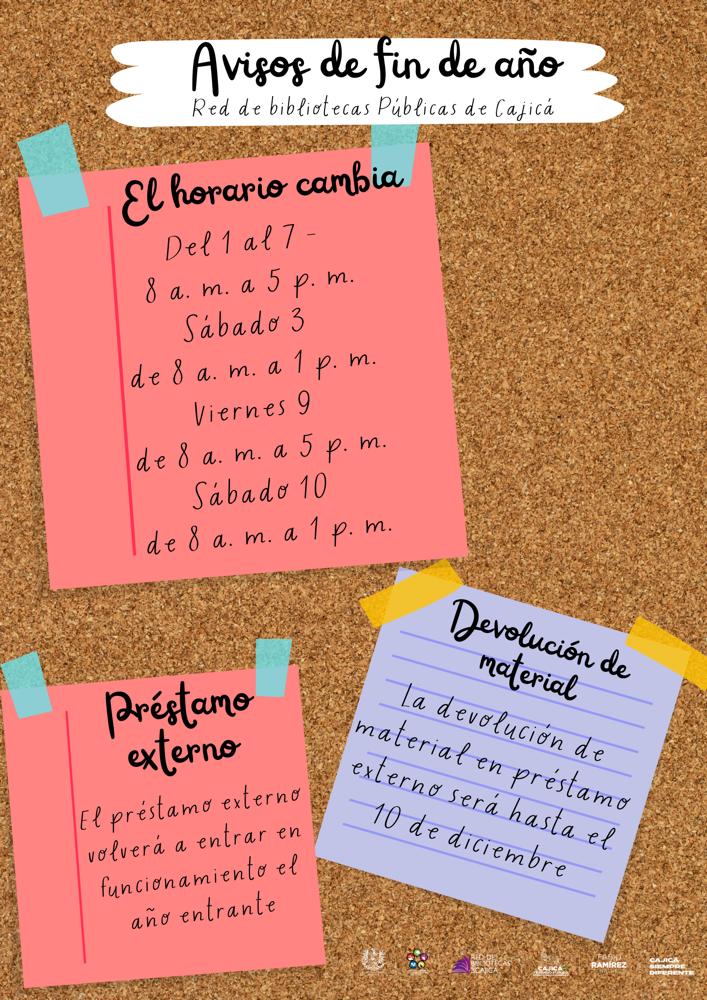 Avisos de fin de año
Red de bibliotecas Públicas de Cajicá
El horario cambia
Del 1 al 7 -
8 a. m. a 5 p. m.
Sábado 3
de 8 a. m. a 1 p. m.
Viernes 9
de 8 a. m. a 5 p. m.
Sábado 10
de 8 a. m. a 1 p. m.
Devolución de
material
La devolución de
material en préstamo
externo será hasta el
10 de diciembre
Préstamo
externo
El préstamo externo
volverá a entrar en
funcionamiento el
año entrante
RED DE
BIBLIOTECAS
CAJICÁ
CAJICÁ
RAMÍREZ
CAJICÁ
SIEMPRE
DIFERENTE